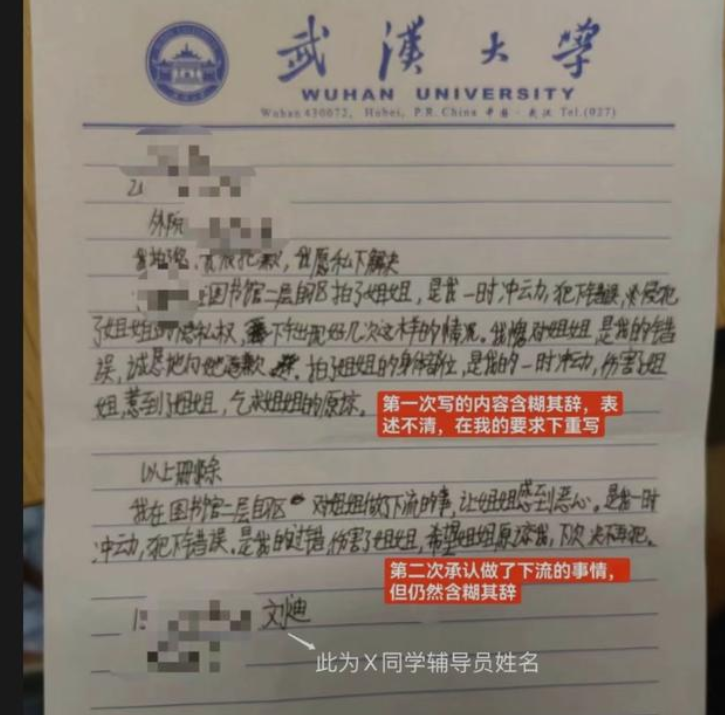 武漢大學
WUHAN UNIVERSITY
Wuhan 430072, Hubei, P.R. China 中国·武汉 Tel.(027)
21
外院
歉,我愿私下解决
图书馆二层自习区拍了姐姐,是我一时冲动,犯下错误,侵犯
了姐姐的隐私权,下出现好几次这样的情况。我愧对姐姐,是我的错
误,诚恳地向她道歉。拍了姐姐的身体部位,是我的一时冲动,伤害了姐
姐,惹到了姐姐,乞求姐姐的原谅。
第一次写的内容含糊其辞,表
述不清,在我的要求下重写
以上删除
我在图书馆二层自习区对姐姐做了下流的事,让姐姐感到恶心。是我一时
冲动,犯下错误。是我的过错,伤害了姐姐,希望姐姐原谅我,下次决不再犯。
第二次承认做了下流的事情,
但仍然含糊其辞
1
刘迪
此为X同学辅导员姓名